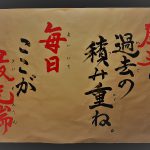 過去の
積み重ね。
毎日
ここが
最先端